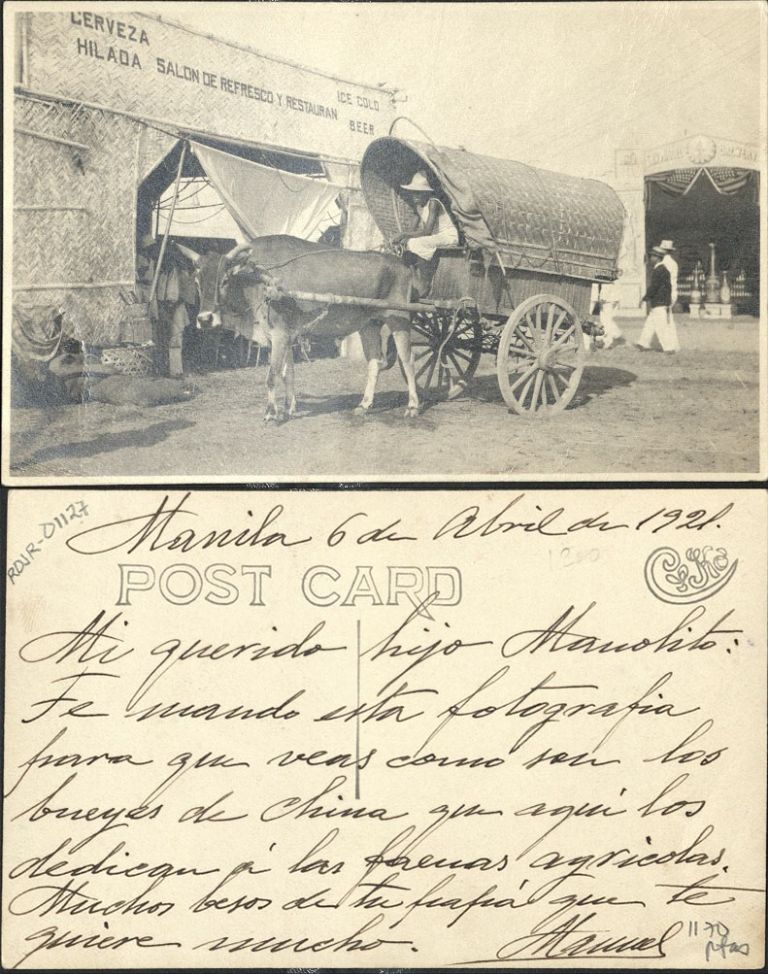 CERVEZA
HILADA SALON DE REFRESCO Y RESTAURAN ICE COLD
BEER
RDJR-01127
Manila 6 de Abril de 1921.
1200
POST CARD
Mi querido hijo Manolito:
Te mando esta fotografia
para que veas como son los
bueyes de China que aquí los
dedican á las faenas agricolas.
Muchos besos de tu papá que te
quiere mucho. Manuel
1170
ptas